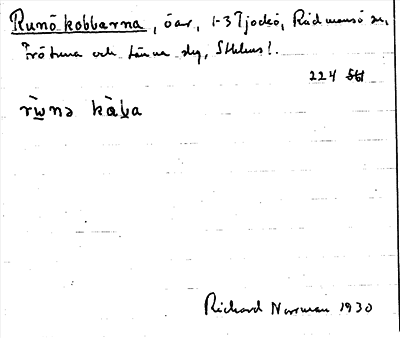 Runökobbarna, öar, 1-3 Tjockö, Rådmansö sn,
Frötuna och Länna slg, Sthlms l.
224
rẁnə kàba
Richard Norrman 1930